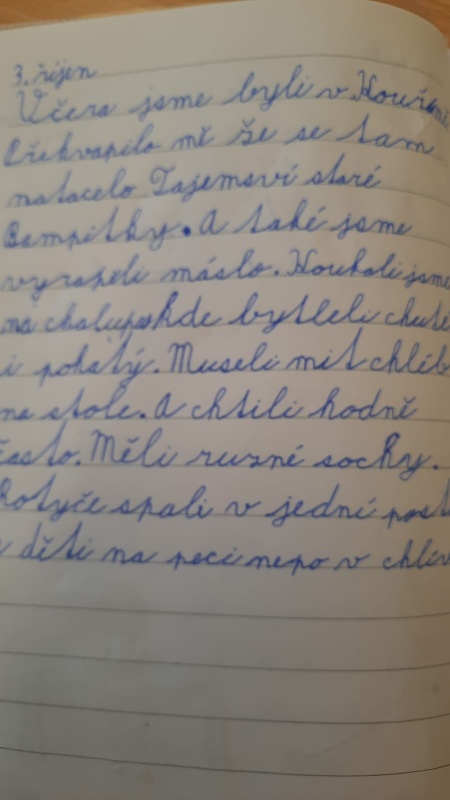 3. říjen
Včera jsme byli v Kouřimi.
Překvapilo mě že se tam
natacelo Tajemsví staré
Bampitky. A také jsme
vyrapěli máslo. Koukali jsme
na chalupykde bytleli chute
i pohatý. Museli mit chléb
na stole. A chtili hodně
často. Měli ruzné sochy.
Rotyče spali v jedni post
a děti na peci nepo v chlív